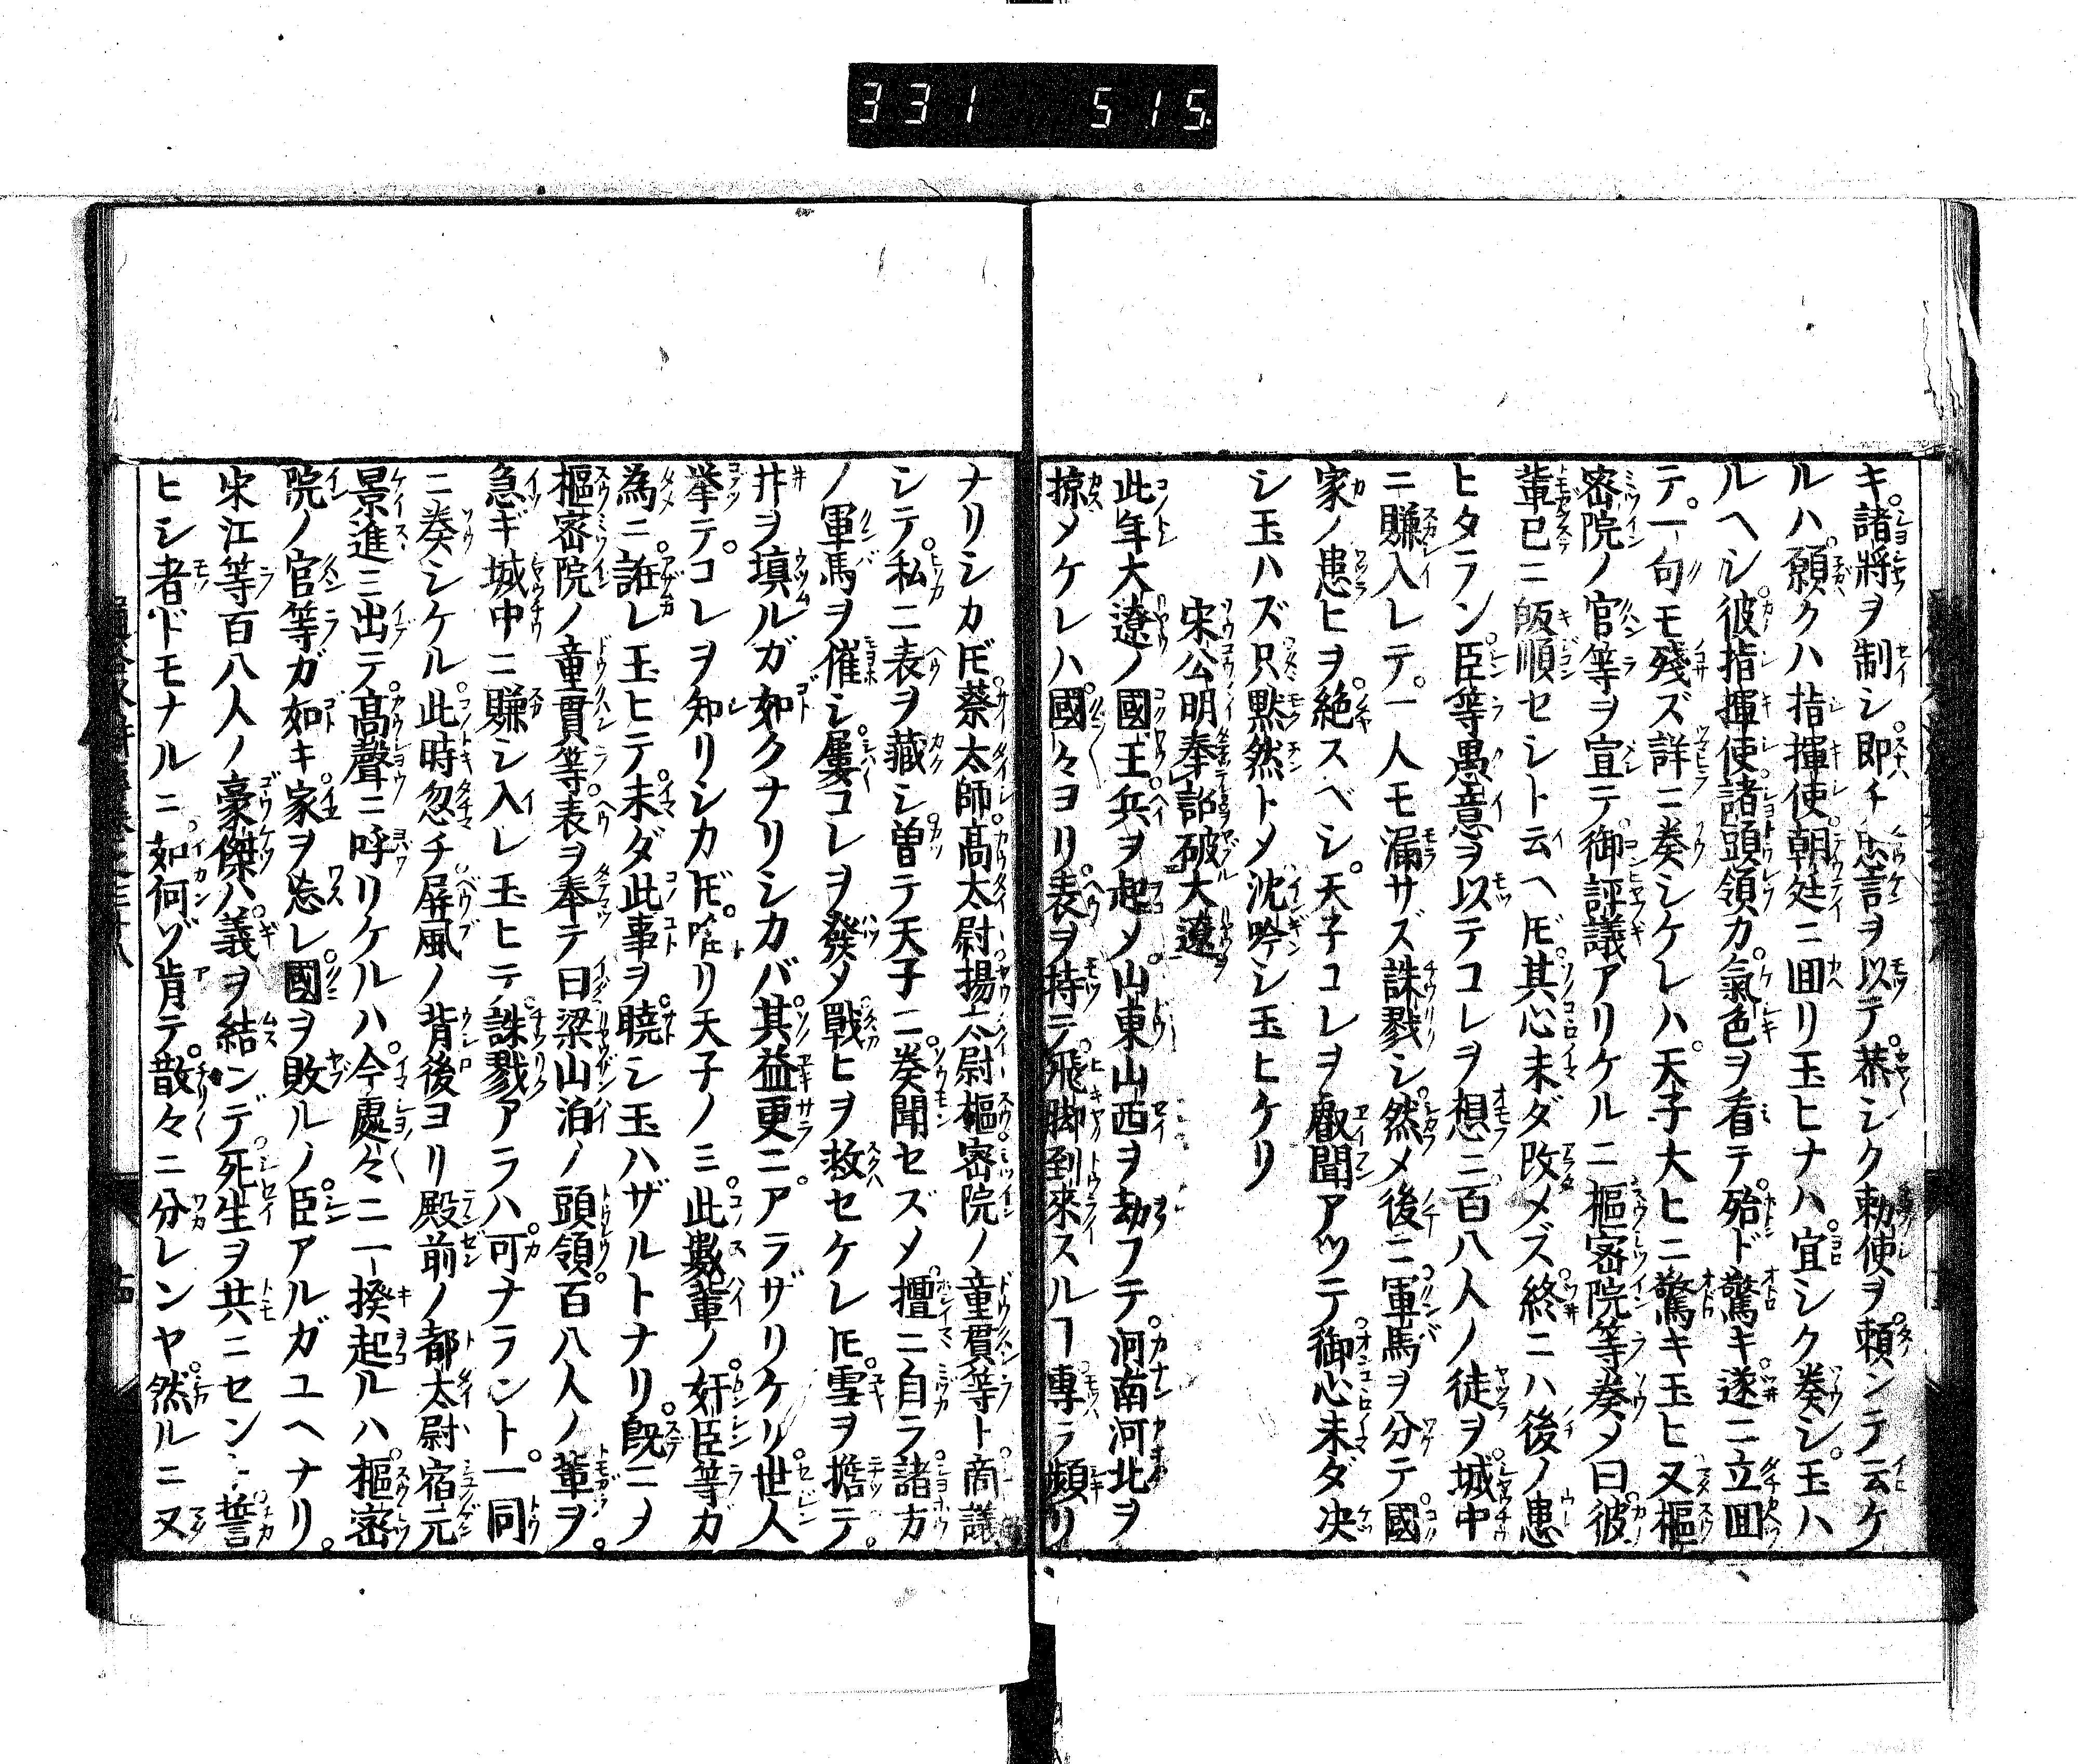 331 515.
キ。諸將ヲ制シ即チ忠言ヲ以テ。恭シク勅使ヲ。頼ンテ云ケ
ルハ。願クハ指揮使朝廷ニ囬リ玉ヒナハ宜シク奏シ。玉ハ
ルヘシ。彼指揮使。諸頭領カ。氣色ヲ看テ。殆ド驚キ。遂ニ立囬
テ。一句モ殘ズ詳ニ奏シケレハ。天子大ヒニ驚キ玉ヒ又樞
密院ノ官等ヲ宣テ御評議アリケルニ樞密院等奏メ曰彼
輩已ニ皈順セシト云ヘ𪜈其心未ダ改メズ終ニハ後ノ患
ヒタラン臣等愚意ヲ以テコレヲ想ニ百八人ノ徒ヲ城中
ニ賺入レテ。一人モ漏サズ誅戮シ然メ後ニ軍馬ヲ分テ國
家ノ患ヒヲ。絶スベシ。天子コレヲ叡聞アツテ御心未ダ决
シ玉ハズ只黙然トメ沈吟シ玉ヒケリ
宋公明奉詔破大遼
此年大遼ノ國王。兵ヲ起メ。山東山西ヲ劫フテ。河南河北ヲ
掠メケレハ。國々ヨリ。表ヲ持テ。飛脚到來スルヿ專ラ頻リ
ナリシカ𪜈。蔡太師。髙太尉。揚太尉。樞密院ノ童貫等ト商議
シテ。私ニ表ヲ藏シ曽テ天子ニ。奏聞セズメ擅ニ自ラ諸方
ノ軍馬ヲ催シ。屢コレヲ發メ戰ヒヲ救セケレ𪜈。雪ヲ擔テ。
井ヲ塡ルガ如クナリシカバ。其益更ニ。アラザリケリ。世人
挙テ。コレヲ知リシカ𪜈。唯リ天子ノミ。此數輩ノ奸臣等カ
為ニ。誑レ玉ヒテ。未ダ此事ヲ。曉シ玉ハザルトナリ。既ニメ
樞密院ノ童貫等。表ヲ奉テ曰梁山泊ノ頭領。百八人ノ輩ヲ。
急ギ城中ニ賺シ入レ玉ヒテ。誅戮アラハ。可ナラント。一同
ニ奏シケル。此時忽チ屏風ノ背後ヨリ殿前ノ都太尉宿元
景進ミ出テ。髙聲ニ呼リケルハ。今處々ニ一揆起ルハ。樞密
院ノ官等ガ如キ。家ヲ忘レ。國ヲ敗ルノ。臣アルガユヘナリ。
宋江等百八人ノ豪傑ハ。義ヲ結ンデ。死生ヲ共ニセント誓
ヒシ者ドモナルニ。如何ゾ肯テ。散々ニ分レンヤ。然ルニ又